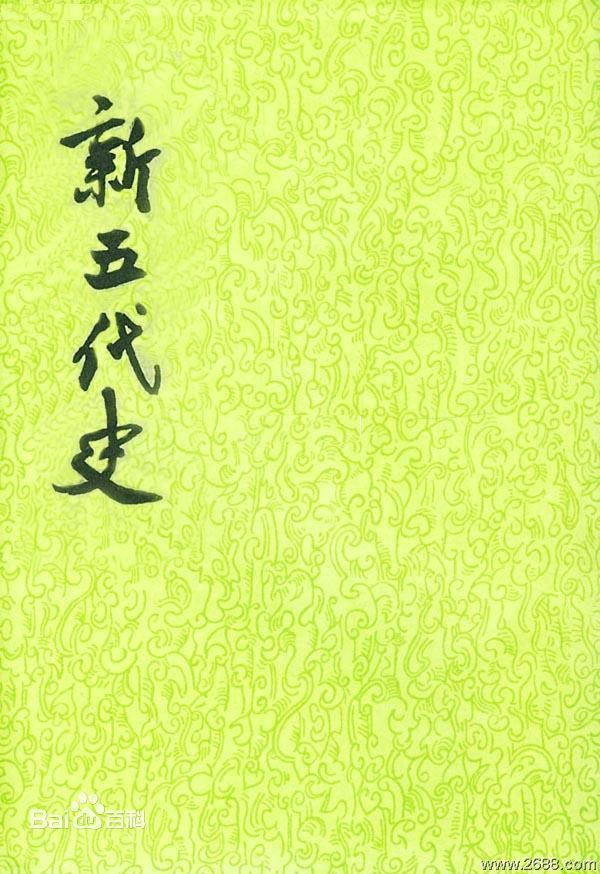 新五代史
Bai百科
www.2688.com